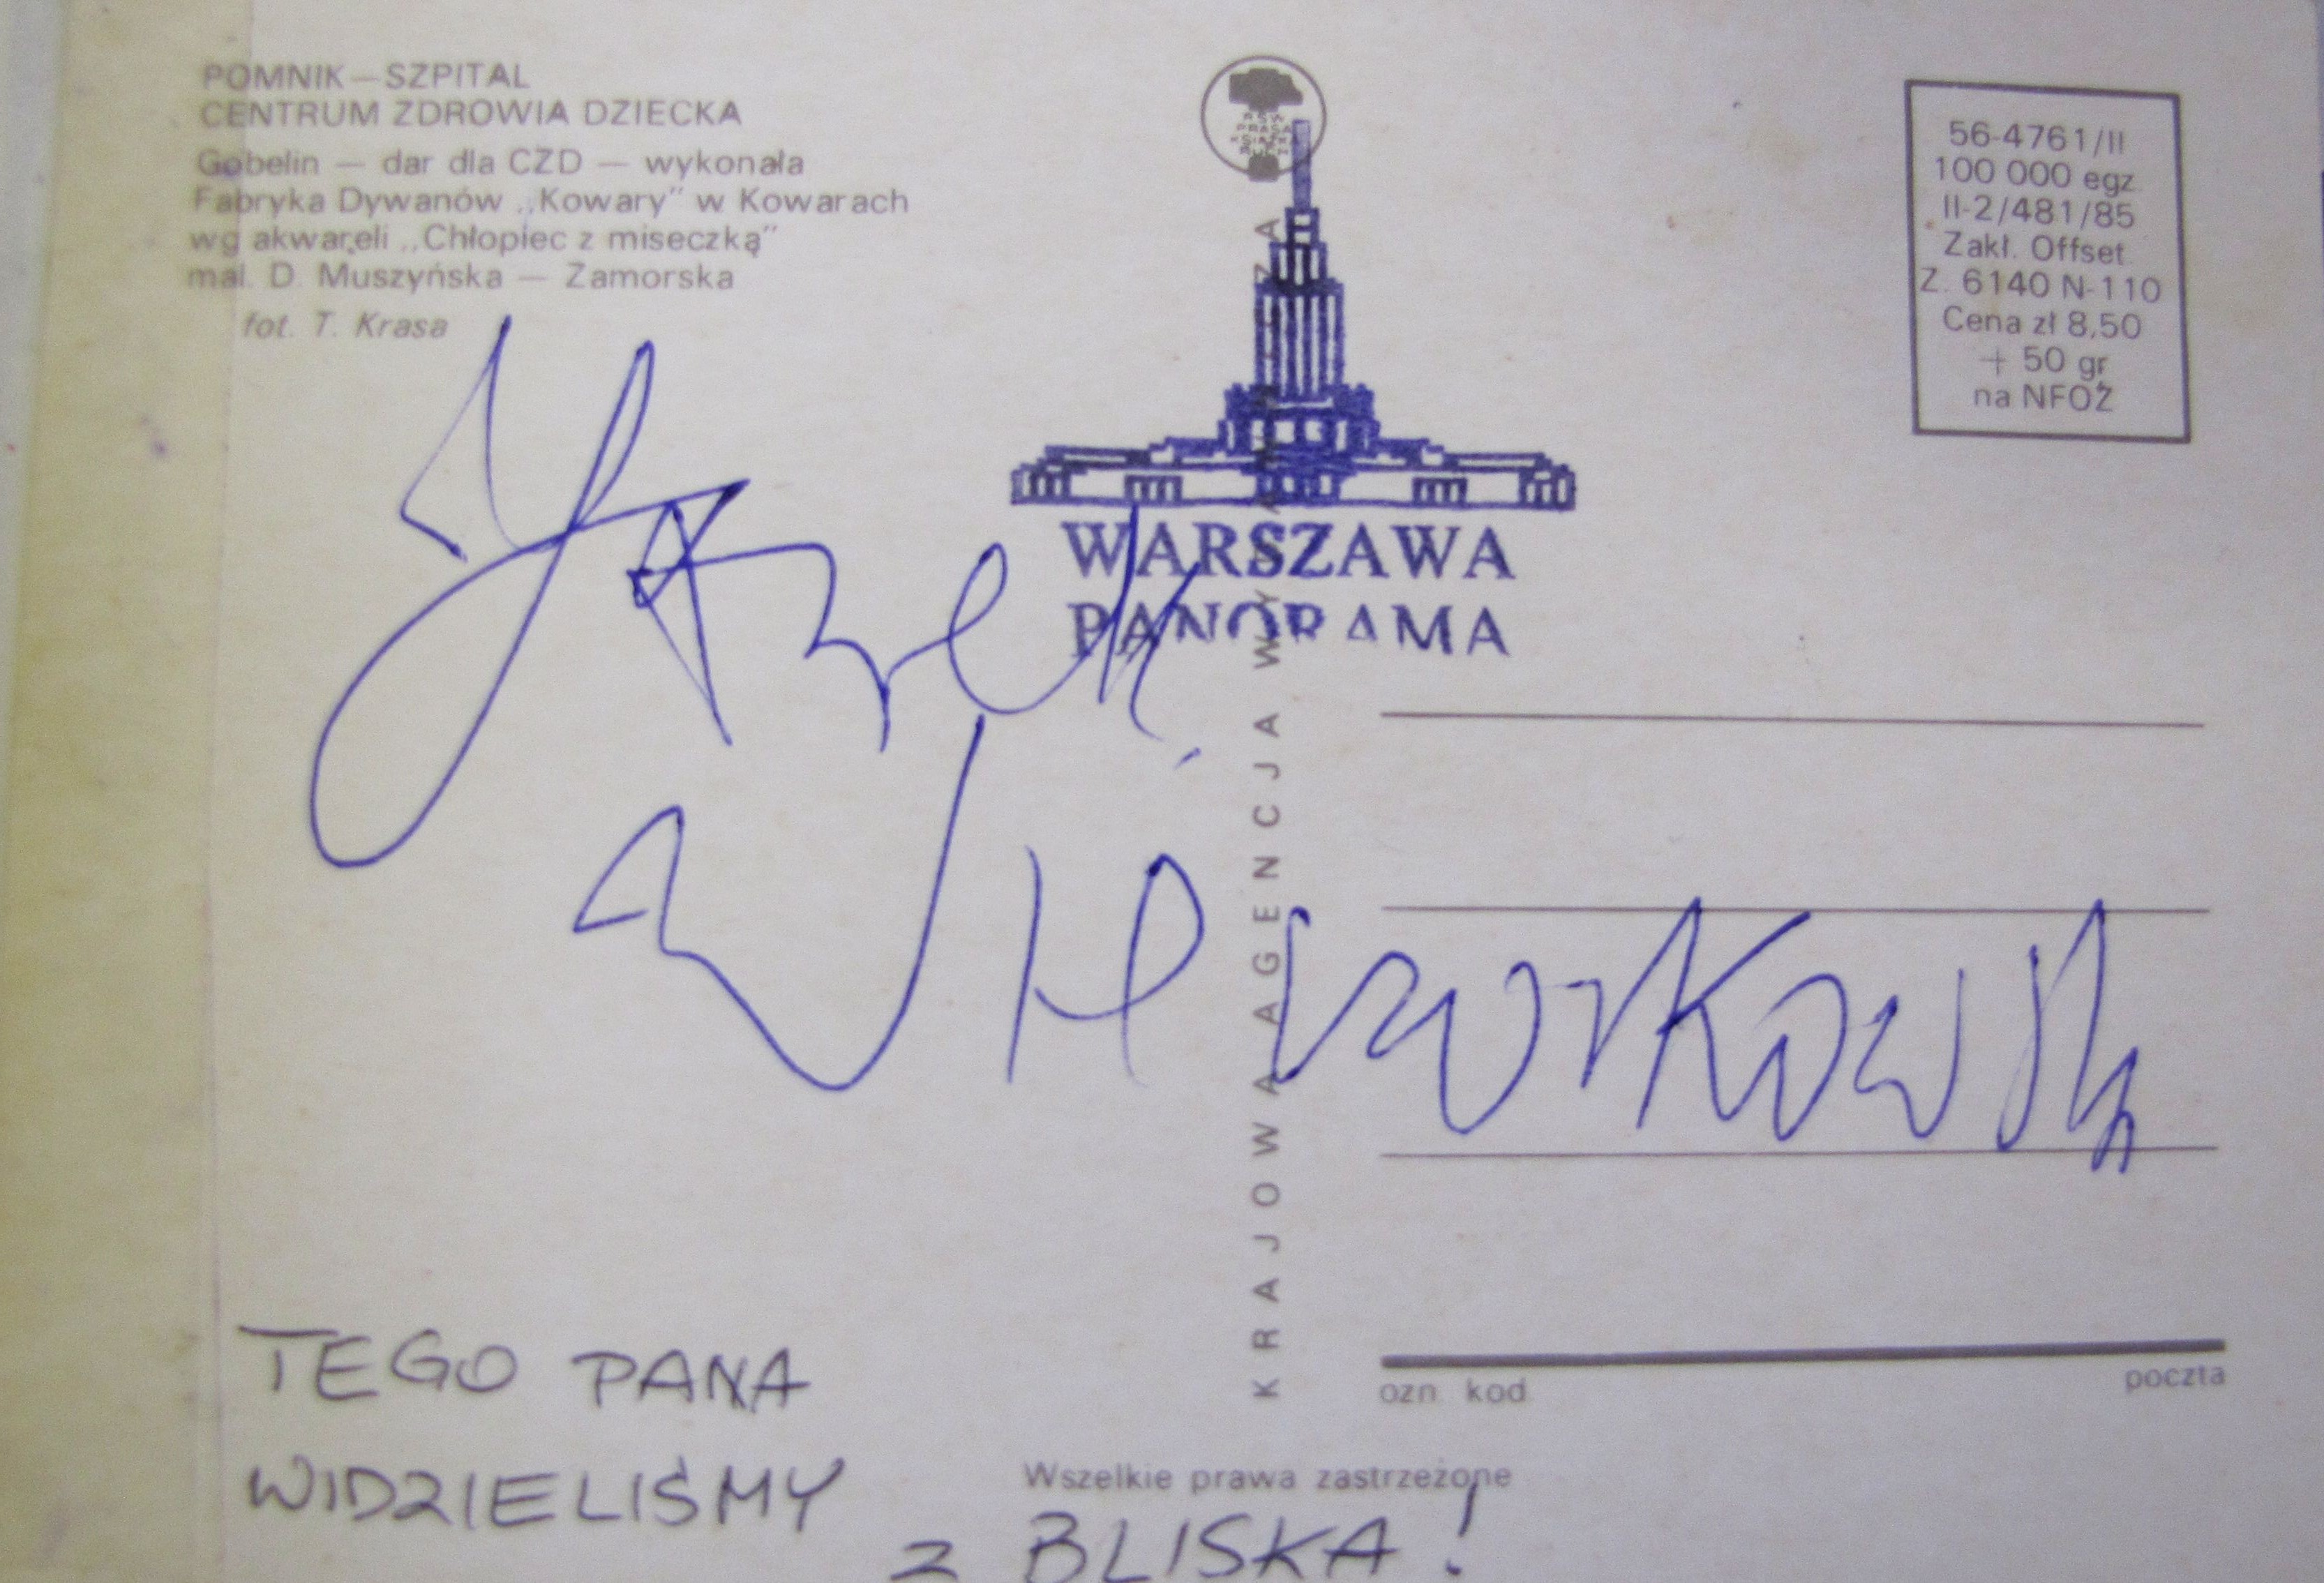 POMNIK—SZPITAL
CENTRUM ZDROWIA DZIECKA
Gobelin — dar dla CZD — wykonała
Fabryka Dywanów „Kowary” w Kowarach
wg akwareli „Chłopiec z miseczką”
mal. D. Muszyńska — Zamorska
fot. T. Krasa
56-4761/II
100 000 egz.
II-2/481/85
Zakł. Offset
Z. 6140 N-110
Cena zł 8,50
+ 50 gr
na NFOZ
WARSZAWA
PANORAMA
KRAJOWA AGENCJA
Jacek
ozn. kod
poczta
Wszelkie prawa zastrzeżone
TEGO PANA
WIDZIELIŚMY
z BLISKA!